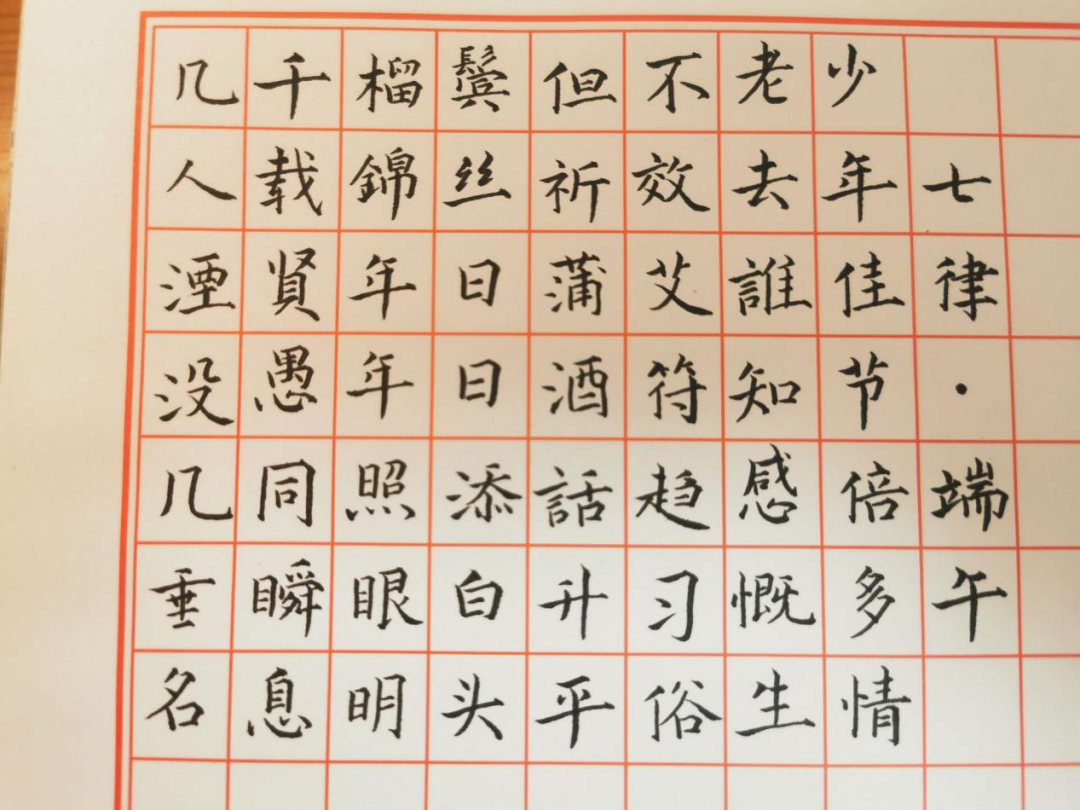 七律·端午
少年佳节倍多情
老去誰知感慨生
不效艾符趋习俗
但祈蒲酒話升平
鬓丝日日添白头
榴錦年年照眼明
千载賢愚同瞬息
几人湮没几垂名